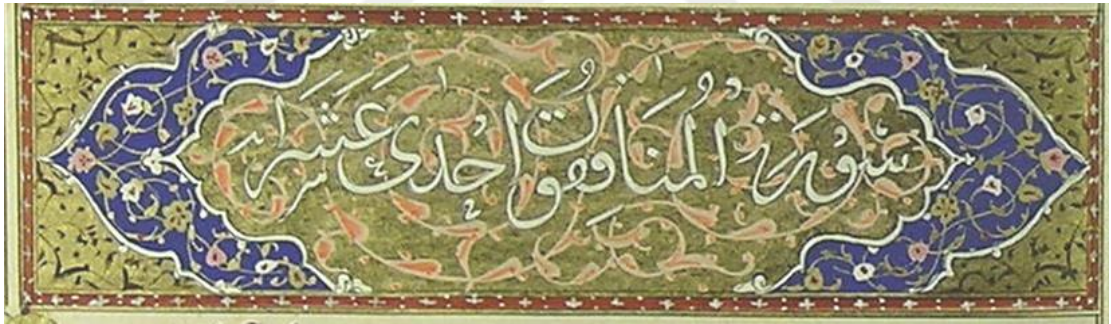 سُورَة المُنَافِقُونَ اِحْدٰى عَشَرَ اية